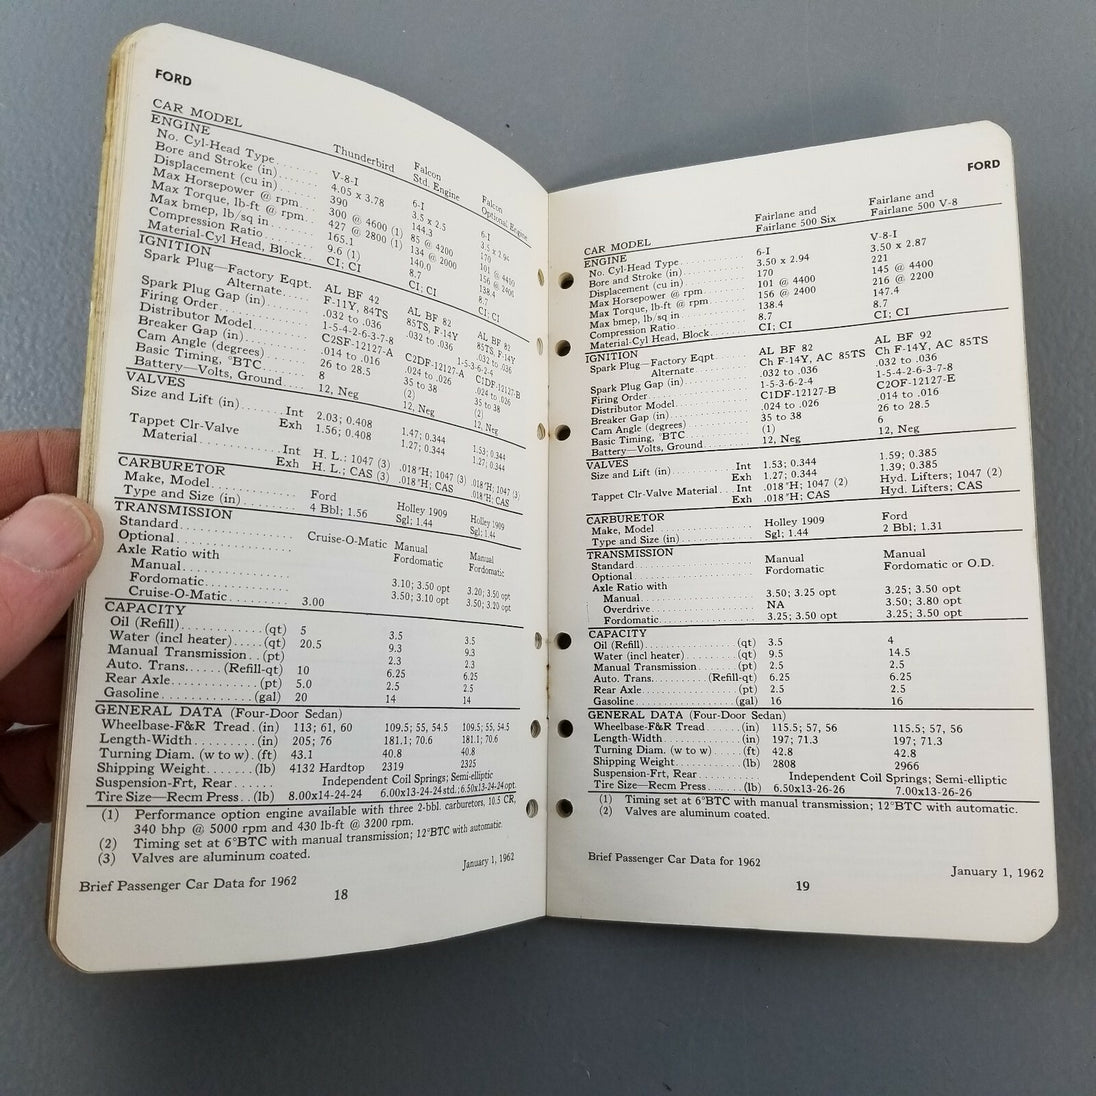 FORD
CAR MODEL Thunderbird Falcon Std. Engine Falcon Optional Engine
ENGINE
No. Cyl-Head Type...... V-8-I 6-I 6-I
Bore and Stroke (in)...... 4.05 x 3.78 3.5 x 2.5 3.5 x 2.94
Displacement (cu in)...... 390 144.3 170
Max Horsepower @ rpm... 300 @ 4600 (1) 85 @ 4200 101 @ 4400
Max Torque, lb-ft @ rpm... 427 @ 2800 (1) 134 @ 2000 156 @ 2400
Max bmep, lb/sq in....... 165.1 140.0 138.4
Compression Ratio...... 9.6 (1) 8.7 8.7
Material-Cyl Head, Block.. CI; CI CI; CI CI; CI
IGNITION
Spark Plug—Factory Eqpt. AL BF 42 AL BF 82 AL BF 82
Alternate..... F-11Y, 84TS 85TS, F-14Y 85TS, F-14Y
Spark Plug Gap (in)....... .032 to .036 .032 to .036 .032 to .036
Firing Order............ 1-5-4-2-6-3-7-8 1-5-3-6-2-4
Distributor Model........ C2SF-12127-A C2DF-12127-A C1DF-12127-B
Breaker Gap (in)........ .014 to .016 .024 to .026 .024 to .026
Cam Angle (degrees)...... 26 to 28.5 35 to 38 35 to 38
Basic Timing, °BTC....... 8 (2) (2)
Battery—Volts, Ground.... 12, Neg 12, Neg 12, Neg
VALVES
Size and Lift (in)....... Int 2.03; 0.408 1.47; 0.344 1.53; 0.344
Exh 1.56; 0.408 1.27; 0.344 1.27; 0.344
Tappet Clr-Valve
Material............ Int H. L.: 1047 (3) .018"H; 1047 (3) .018"H; 1047 (3)
Exh H. L.; CAS (3) .018"H; CAS .018"H; CAS
CARBURETOR
Make, Model............ Ford Holley 1909 Holley 1909
Type and Size (in)........ 4 Bbl; 1.56 Sgl; 1.44 Sgl; 1.44
TRANSMISSION
Standard............ Cruise-O-Matic Manual Manual
Optional............ Fordomatic Fordomatic
Axle Ratio with
Manual............ 3.10; 3.50 opt 3.20; 3.50 opt
Fordomatic............ 3.50; 3.10 opt 3.50; 3.20 opt
Cruise-O-Matic........ 3.00
CAPACITY
Oil (Refill)............(qt) 5 3.5 3.5
Water (incl heater).....(qt) 20.5 9.3 9.3
Manual Transmission..(pt) 2.3 2.3
Auto. Trans......(Refill-qt) 10 6.25 6.25
Rear Axle............(pt) 5.0 2.5 2.5
Gasoline............(gal) 20 14 14
GENERAL DATA (Four-Door Sedan)
Wheelbase-F&R Tread.(in) 113; 61, 60 109.5; 55, 54.5 109.5; 55, 54.5
Length-Width..........(in) 205; 76 181.1; 70.6 181.1; 70.6
Turning Diam. (w to w).(ft) 43.1 40.8 40.8
Shipping Weight.......(lb) 4132 Hardtop 2319 2325
Suspension-Frt, Rear....... Independent Coil Springs; Semi-elliptic
Tire Size—Recm Press..(lb) 8.00x14-24-24 6.00x13-24-24 std.; 6.50x13-24-24 opt.
(1) Performance option engine available with three 2-bbl. carburetors, 10.5 CR,
340 bhp @ 5000 rpm and 430 lb-ft @ 3200 rpm.
(2) Timing set at 6°BTC with manual transmission; 12°BTC with automatic.
(3) Valves are aluminum coated.
January 1, 1962
Brief Passenger Car Data for 1962
18
FORD
CAR MODEL Fairlane and Fairlane 500 Six Fairlane and Fairlane 500 V-8
ENGINE
No. Cyl-Head Type........ 6-I V-8-I
Bore and Stroke (in)....... 3.50 x 2.94 3.50 x 2.87
Displacement (cu in)....... 170 221
Max Horsepower @ rpm.... 101 @ 4400 145 @ 4400
Max Torque, lb-ft @ rpm... 156 @ 2400 216 @ 2200
Max bmep, lb/sq in........ 138.4 147.4
Compression Ratio........ 8.7 8.7
Material-Cyl Head, Block... CI; CI CI; CI
IGNITION
Spark Plug—Factory Eqpt.. AL BF 82 AL BF 92
Alternate...... Ch F-14Y, AC 85TS Ch F-14Y, AC 85TS
Spark Plug Gap (in)........ .032 to .036 .032 to .036
Firing Order............ 1-5-3-6-2-4 1-5-4-2-6-3-7-8
Distributor Model........ C1DF-12127-B C2OF-12127-E
Breaker Gap (in)........ .024 to .026 .014 to .016
Cam Angle (degrees)....... 35 to 38 26 to 28.5
Basic Timing, °BTC........ (1) 6
Battery—Volts, Ground..... 12, Neg 12, Neg
VALVES
Size and Lift (in)........ Int 1.53; 0.344 1.59; 0.385
Exh 1.27; 0.344 1.39; 0.385
Tappet Clr-Valve Material...Int .018"H; 1047 (2) Hyd. Lifters; 1047 (2)
Exh .018"H; CAS Hyd. Lifters; CAS
CARBURETOR
Make, Model............ Holley 1909 Ford
Type and Size (in)........ Sgl; 1.44 2 Bbl; 1.31
TRANSMISSION
Standard............ Manual Manual
Optional............ Fordomatic Fordomatic or O.D.
Axle Ratio with
Manual............ 3.50; 3.25 opt 3.25; 3.50 opt
Overdrive............ NA 3.50; 3.80 opt
Fordomatic............ 3.25; 3.50 opt 3.25; 3.50 opt
CAPACITY
Oil (Refill)............(qt) 3.5 4
Water (incl heater)......(qt) 9.5 14.5
Manual Transmission....(pt) 2.5 2.5
Auto. Trans........(Refill-qt) 6.25 6.25
Rear Axle............(pt) 2.5 2.5
Gasoline............(gal) 16 16
GENERAL DATA (Four-Door Sedan)
Wheelbase-F&R Tread...(in) 115.5; 57, 56 115.5; 57, 56
Length-Width..........(in) 197; 71.3 197; 71.3
Turning Diam. (w to w)..(ft) 42.8 42.8
Shipping Weight........(lb) 2808 2966
Suspension-Frt, Rear........ Independent Coil Springs; Semi-elliptic
Tire Size—Recm Press...(lb) 6.50x13-26-26 7.00x13-26-26
(1) Timing set at 6°BTC with manual transmission; 12°BTC with automatic.
(2) Valves are aluminum coated.
Brief Passenger Car Data for 1962
January 1, 1962
19